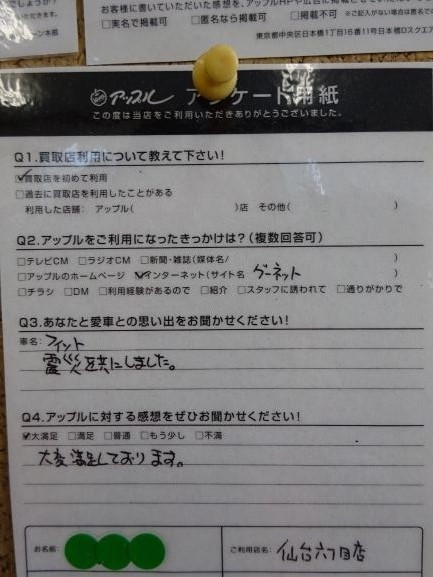 お客様に書いていただいた感想を、アップルHPや広告に掲載させて
□実名で掲載可 □匿名なら掲載可 □掲載不可
東京都中央区日本橋1丁目16番11号日本橋Dスクエア
ーン本部
アップル アンケート用紙
この度は当店をご利用いただきありがとうございました。
Q1.買取店利用について教えて下さい!
☑買取店を初めて利用
□過去に買取店を利用したことがある
利用した店舗: アップル( )店 その他( )
Q2.アップルをご利用になったきっかけは?(複数回答可)
□テレビCM □ラジオCM □新聞・雑誌(媒体名/ )
□アップルのホームページ ☑インターネット(サイト名 グーネット )
□チラシ □DM □利用経験があるので □紹介 □スタッフに誘われて □通りがかりで
Q3.あなたと愛車との思い出をお聞かせください!
車名:
震災を共にしました。
Q4.アップルに対する感想をぜひお聞かせください!
☑大満足 □満足 □普通 □もう少し □不満
大変満足しております。
お名前 ご利用店名: 仙台六丁目店